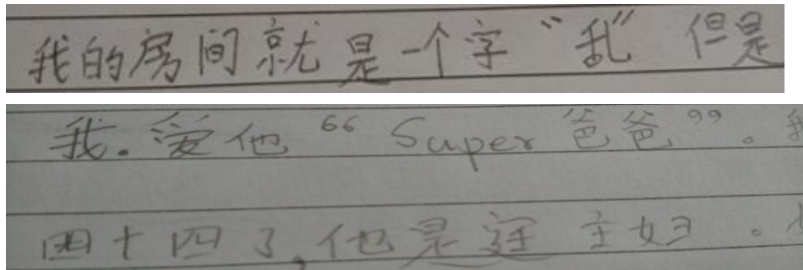 我的房间就是一个字“乱”但是
我.爱他“Super爸爸”。我
四十四了,他是主妇。